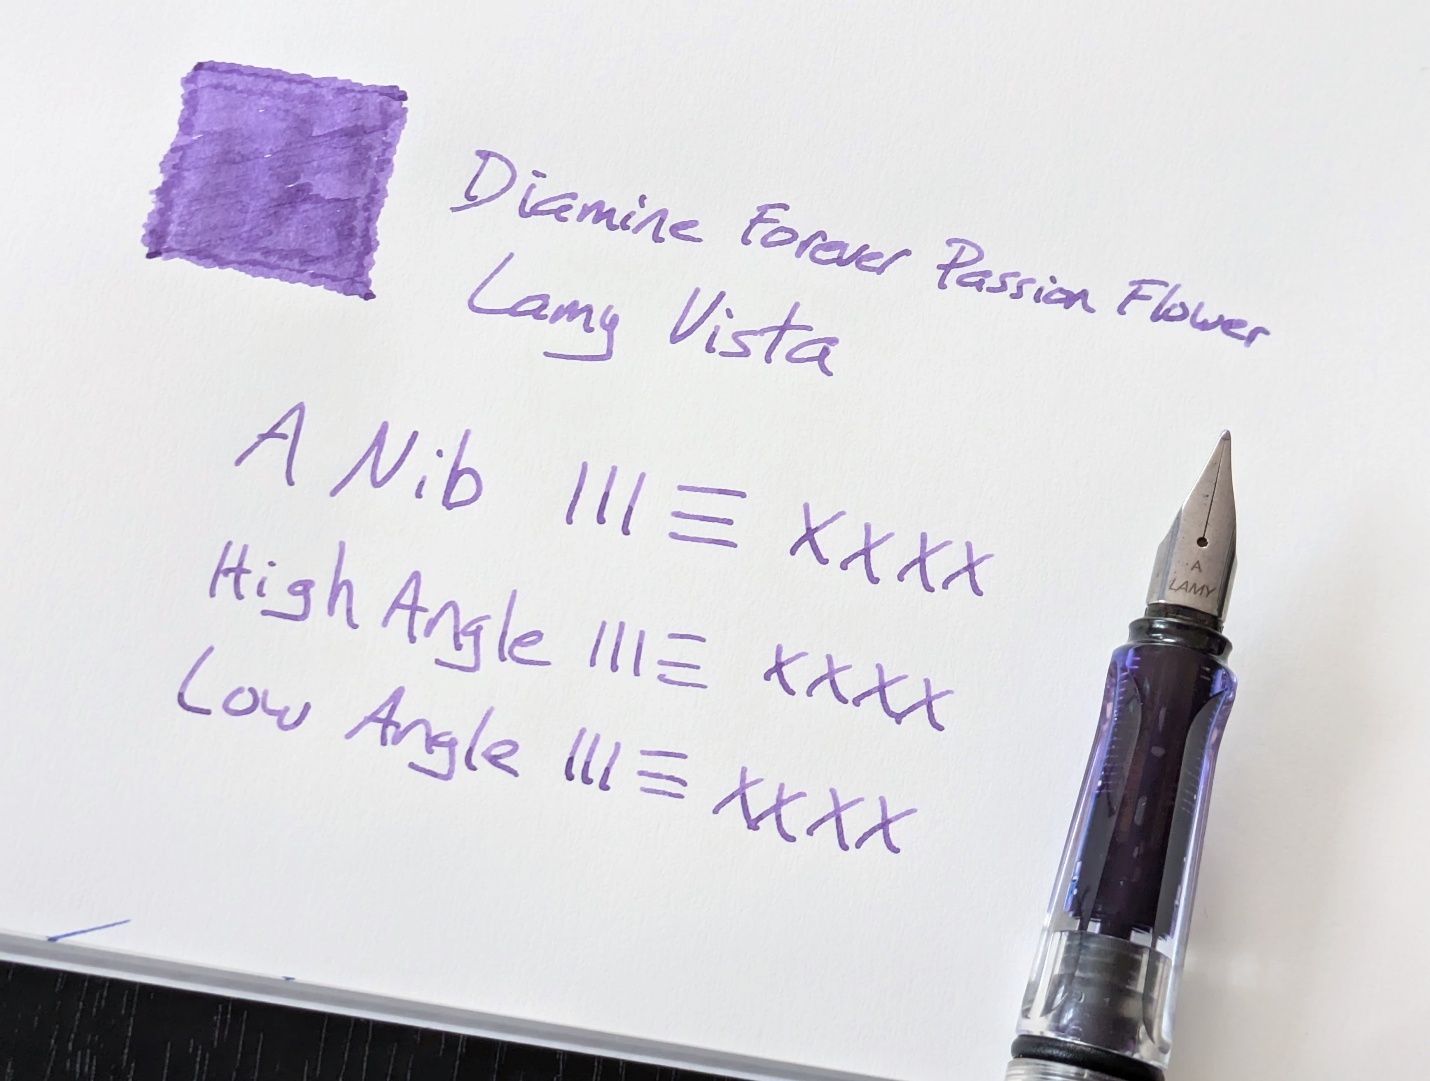 Diamine Forever Passion Flower
Lamy Vista
A Nib III ≡ XXXX
High Angle III ≡ XXXX
Low Angle III ≡ XXXX
A
LAMY